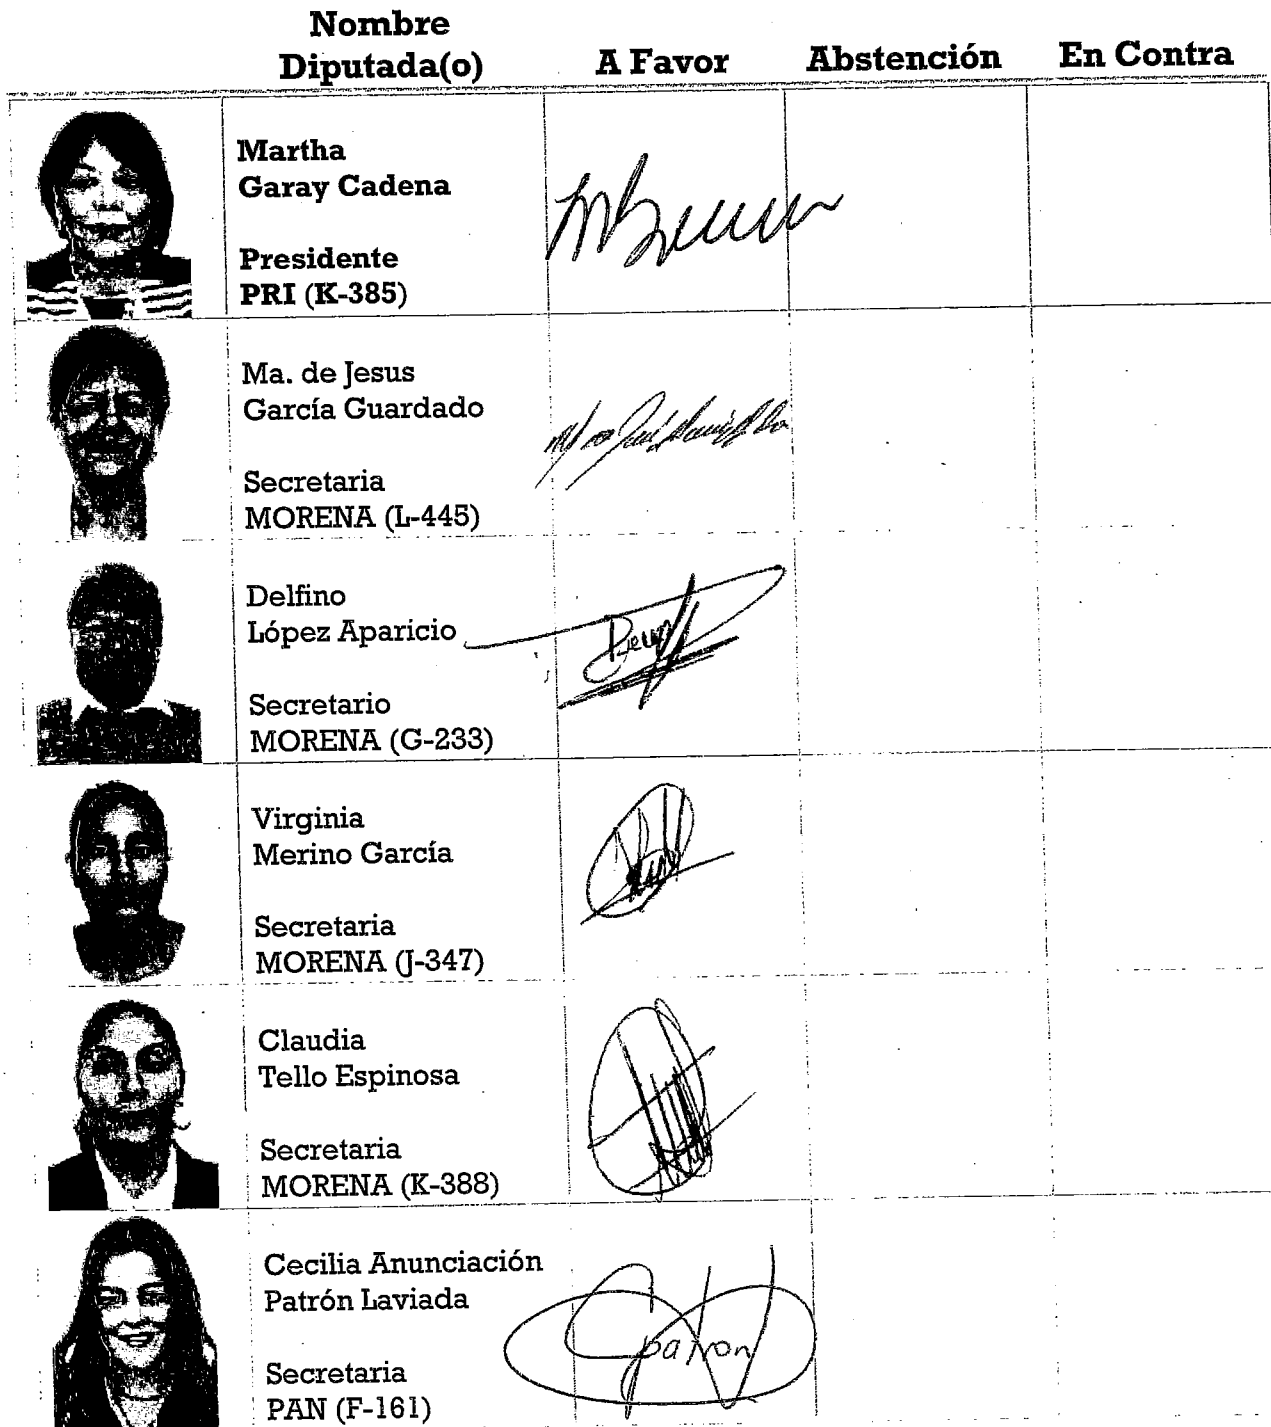 Nombre
Diputada(o)
A Favor
Abstención
En Contra
Martha
Garay Cadena
Presidente
PRI (K-385)
Ma. de Jesus
García Guardado
Secretaria
MORENA (L-445)
Delfino
López Aparicio
Secretario
MORENA (G-233)
Virginia
Merino García
Secretaria
MORENA (J-347)
Claudia
Tello Espinosa
Secretaria
MORENA (K-388)
Cecilia Anunciación
Patrón Laviada
Secretaria
PAN (F-161)
Cpatron